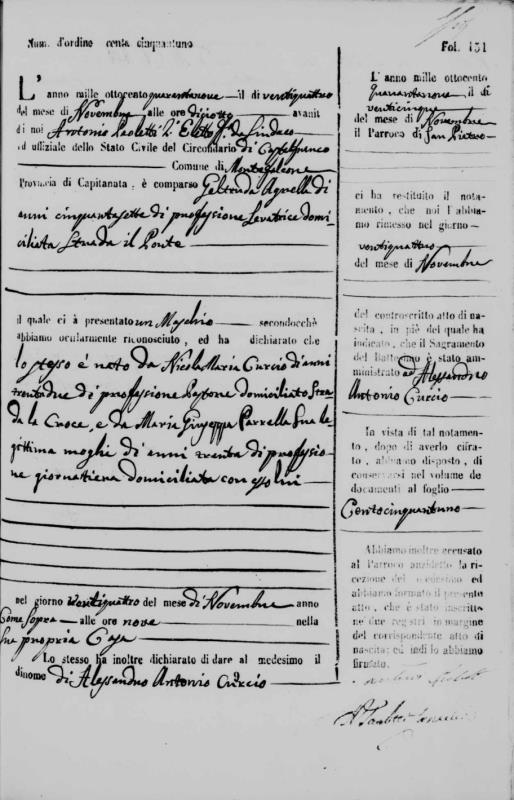 Num. d'ordine cento cinquantuno
L'anno mille ottocento quarantanove il di ventiquattro
del mese di Novembre alle ore diciotto avanti
di noi Antonio Paoletti 2.° Eletto ff. da Sindaco
ed uffiziale dello Stato Civile del Circondario di Castelfranco
Comune di Montefalcone
Provincia di Capitanata, è comparso Geltruda Agnelli di
anni cinquantasette di professione Levatrice domi-
ciliata Strada il Ponte
il quale ci à presentato un Maschio secondocchè
abbiamo ocularmente riconosciuto, ed ha dichiarato che
lo stesso è nato da Nicola Maria Curcio di anni
trentadue di professione Pastore domiciliato Stra
da la Croce, e da Maria Giuseppa Parrella Sua le
gittima moglie di anni trenta di professio
ne giornatiera domiciliata con esso lui
nel giorno ventiquattro del mese di Novembre anno
Come Sopra alle ore nove nella
Sua propria Casa
Lo stesso ha inoltre dichiarato di dare al medesimo il
dinome di Alessandro Antonio Curcio
Fol. 151
L'anno mille ottocento
quarantanove il di
venticinque
del mese di Novembre
il Parroco di San Pietro
ci ha restituito il nota-
mento, che noi l'abbia-
mo rimesso nel giorno
ventiquattro
del mese di Novembre
del controscritto atto di na-
scita, in piè del quale ha
indicato, che il Sagramento
del Battesimo è stato am-
ministrato ad Alessandro
Antonio Curcio
In vista di tal notamen-
to, dopo di averlo cifra-
to, abbiamo disposto, di
conservarsi nel volume de
documenti al foglio
Centocinquantuno
Abbiamo inoltre accusato
al Parroco anzidetto la ri-
cezione del notamento ed
abbiamo formato il presente
atto, che è stato inscritto
ne' due registri in margine
del corrispondente atto di
nascita; ed indi lo abbiamo
firmato.